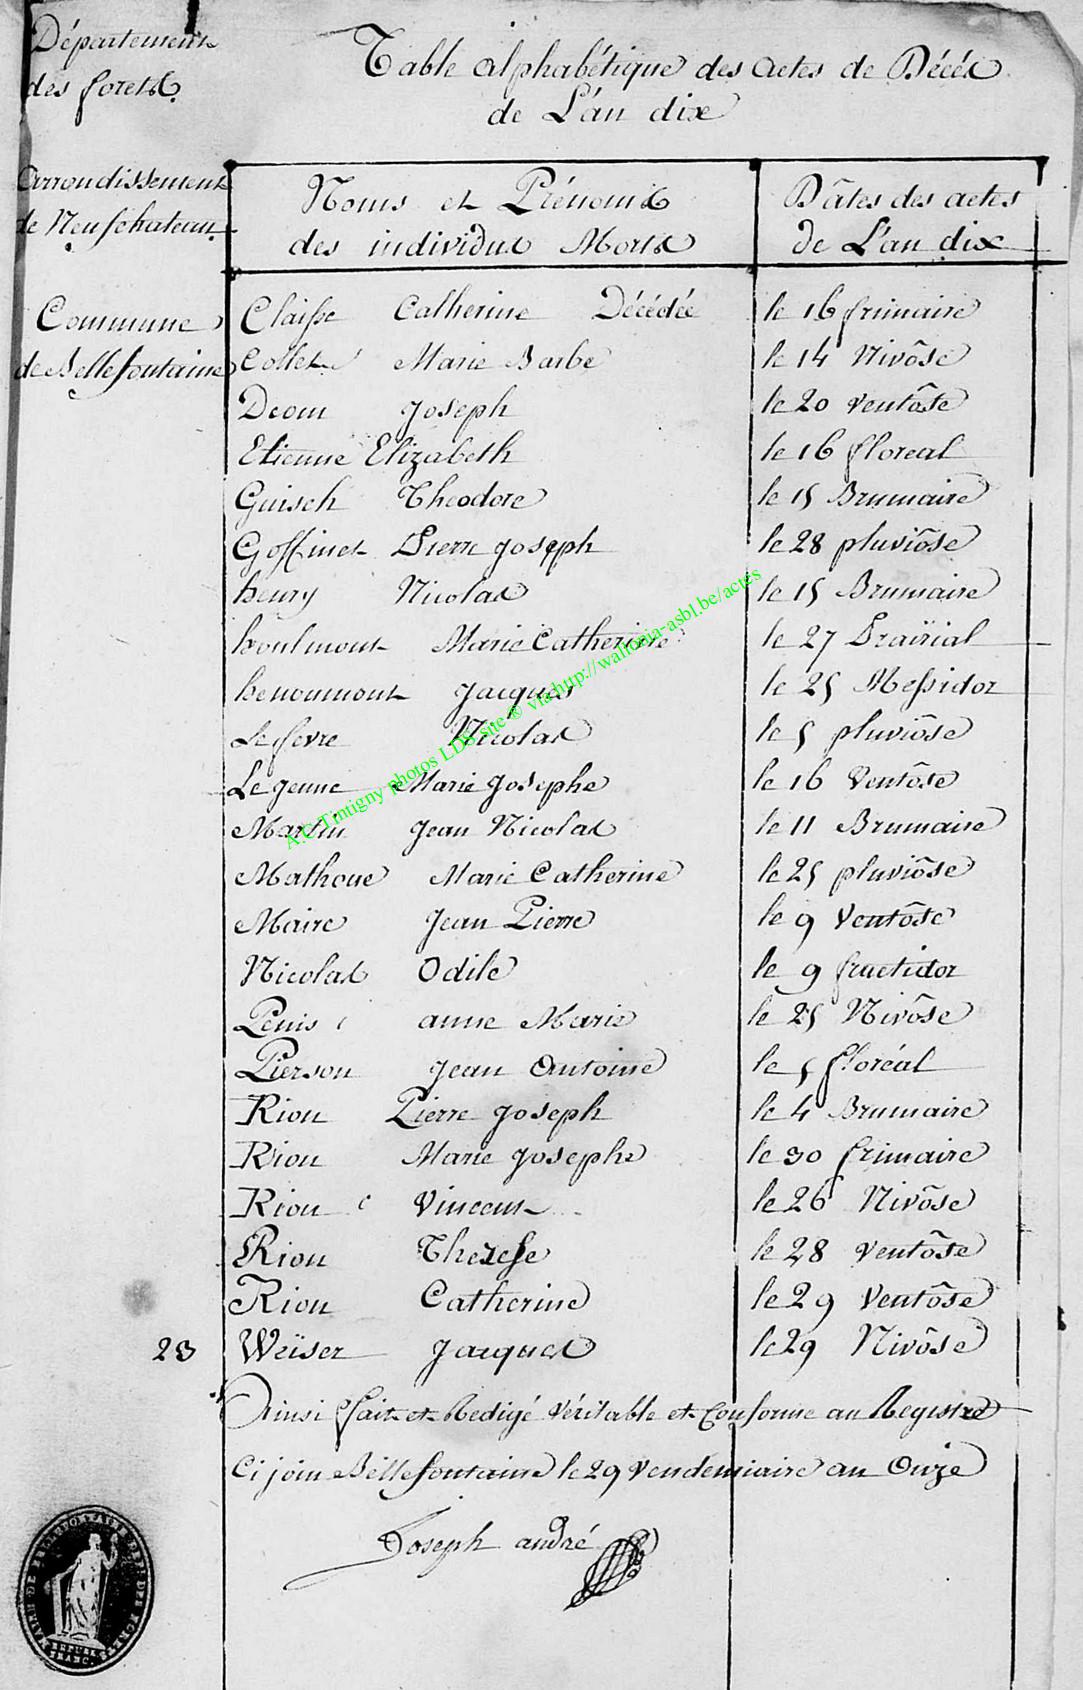 Département
des forets.
Table alphabétique des actes de Décés
de L'an dix
Arrondissement
de Neufchateau
Noms et Prénoms
des individus Morts
Dâtes des actes
de L'an dix
Commune
de Bellefontaine
Claisse Catherine Décédée le 16 frimaire
Collet Marie Barbe le 14 Nivôse
Deom Joseph le 20 ventôse
Etienne Elizabeth le 16 floreal
Guisch Theodore le 15 Brumaire
Goffinet Pierre joseph le 28 pluviôse
henry Nicolas le 15 Brumaire
houlmont Marie Catherine le 27 Prairial
henoumont Jacques le 25 Messidor
Lefevre Nicolas le 5 pluviôse
Le jeune Marie Josephe le 16 Ventôse
Martin Jean Nicolas le 11 Brumaire
Mathoue Marie Catherine le 25 pluviôse
Maire Jean Pierre le 9 Ventôse
Nicolas Odile le 9 fructidor
Penis anne Marie le 25 Nivôse
Pierson Jean Antoine le 5 floréal
Rion Pierre Joseph le 4 Brumaire
Rion Marie Josephe le 30 frimaire
Rion Vincent le 26 Nivôse
Rion Therese le 28 ventôse
Rion Catherine le 29 Ventôse
23 Weiser Jacques le 29 Nivôse
Ainsi fait et Redigé véritable et Conforme au Registre
Ci join Bellefontaine le 29 vendemiaire an Onze
Joseph andré
A.C Tintigny photos LDS site ® via http://wallonia-asbl.be/actes
MAIRIE DE BELLEFONTAINE DEPT DES FORETS
REPUB
FRANC.